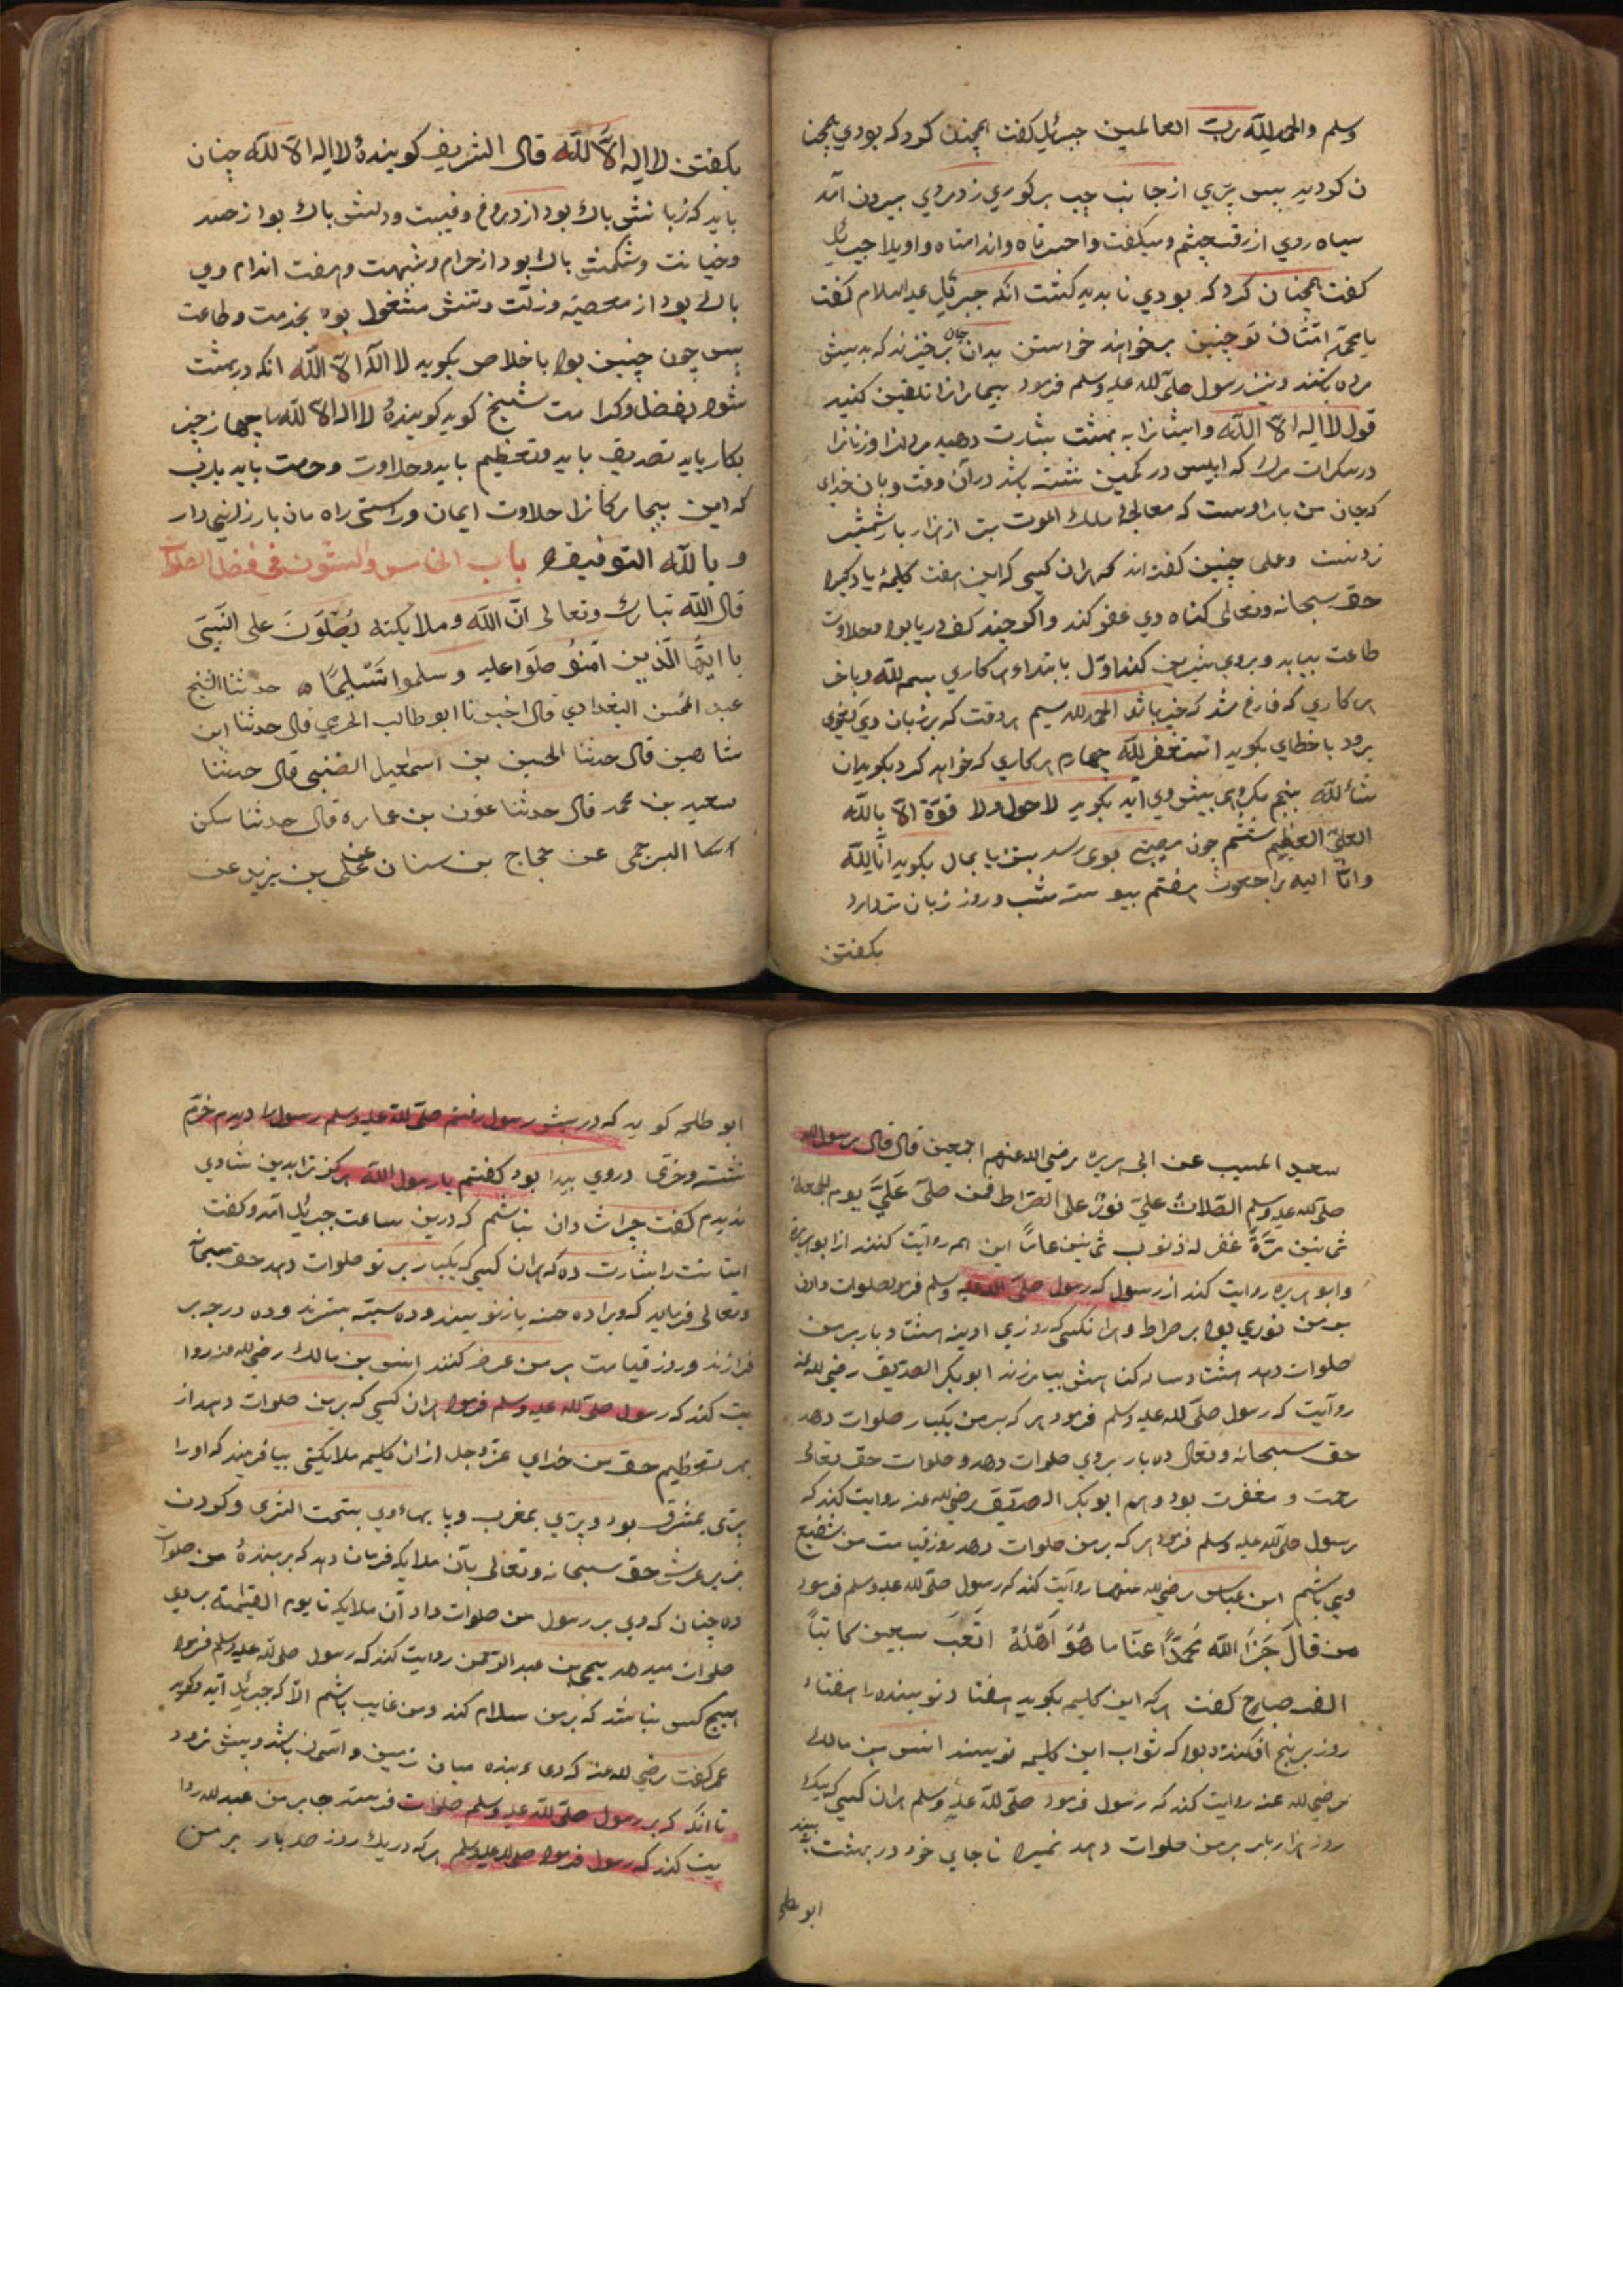 وسلم والحمد لله رب العالمين جبرئيل كفت همچنان كرد كه بودي همچنا
ن كرديد پس پري از جانب چپ بر كوري زد مردي بيرون آمد
سياه روي ازرق چشم وميكفت واحسرتاه واندامتاه واويلا جبرئيل
كفت همچنان كرد كه بودي ناپديد كشت انكه جبرئيل عليه السلام كفت
يا محمد امتان تو چنين برخوانند خواستن بدان جان برخيزند كه بدپيش
مرده باشند ونيز رسول صلى الله عليه وسلم فرمود بيمارانرا تلقين كنيد
قول لا اله الا الله وايشانرا به بهشت بشارت دهيد مردانرا وزنانرا
درسكرات مرك كه ابليس در كمين نشسته باشد درآن وقت وبآن خداى
كه جان من بامر اوست كه معالجهٔ ملك الموت بتر از هزار بار شمشير
زدنست وعلى چنين كفته اند كه هران كسى كه اين هفت كليمهٔ ياد كيرد
حق سبحانه وتعالى كناه وي عفو كند واكر چند كف دريا بود وحلاوت
طاعت بيابد وبروى شيرين كند اوّل بابتداء هر كاري بسم الله وباخر
هر كاري كه فارغ شد كه خير باشد الحمد لله سيم هر وقت كه بر زبان وي لغوى
برود يا خطاي بكويد استغفر الله چهارم هر كاري كه خواهد كرد بكويد ان
شاء الله پنجم مكروهى پيش وي آيد بكويد لا حول ولا قوّة الّا بالله
العلى العظيم ششم چون مصيبتي بوى رسد بتن يا بمال بكويد انّا لله
وانّا اليه راجعون هفتم پيوسته شب وروز زبان تر دارد
بكفتن
بكفتن لا اله الّا الله قال الشريف كويندهٔ لا اله الا الله چنان
بايد كه زبانش پاك بود از دروغ وغيبت ودلش پاك بود از حسد
وخيانت وشكمش پاك بود از حرام وشبهت وهفت اندام وي
پاك بود از معصيته وزلّت وتنش مشغول بود بخدمت وطاعت
پس چون چنين بود باخلاص بكويد لا اله الا الله انكه در بهشت
شود بفضل وكرامت شيخ كويد كويندهٔ لا اله الا الله با چهار چيز
بكار بايد تصديق بايد وتعظيم بايد وحلاوت وحرمت بايد يارب
كه اين بيچاركانرا حلاوت ايمان وراستى راه مان بارزانى دار
وبالله التوفيق باب الخامس والستون في فضل الصلوات
قال الله تبارك وتعالى انّ الله وملايكته يُصَلّونَ على النَّبِى
يا ايّها الّذين امنوُ صلّوا عليه وسلموا تَسْلِيمًا حدثنا الشيخ
عبد المحسن البغدادي قال اخبرنا ابو طالب الحربى قال حدثنا ابن
شاهين قال حدثنا الحسين بن اسمعيل الضبى قال حدثنا
سعيد بن محمد قال حدثنا عون بن عماره قال حدثنا سكن
البرجمى عن حجاج بن سنان عن على بن يزيد عن
سعيد المسيب عن ابى هريره رضي الله عنهم اجمعين قال قال رسول الله
صلى الله عليه وسلم الصّلاتُ علىّ نورٌ على الصّراط فمن صلّى عَلَىَّ يوم الجمعة
ثمانين مَرَّةً غفر له ذنوب ثمانين عامًا اين همه روآيت كنند از ابو هريرة
وابو هريره روايت كند از رسول كه رسول صلى الله عليه وسلم فرمود صلوات دادن
بر من نوري بود بر صراط وهر انكسى كه روزي ادينه هشتاد بار بر من
صلوات دهد هشتاد ساله كناهش بيامرزند ابو بكر الصديق رضي الله عنه
روآيت كه رسول صلى الله عليه وسلم فرمود هر كه بر من يكبار صلوات دهد
حق سبحانه وتعالى ده بار بروي صلوات دهد وصلوات حق تعالى
رحمت ومغفرت بود وهم ابو بكر الصديق رضي الله عنه روايت كند كه
رسول صلى الله عليه وسلم فرمود هر كه بر من صلوات دهد روز قيامت من شفيع
وي باشم ابن عباس رضي الله عنهما روآيت كند كه رسول صلى الله عليه وسلم فرمود
من قالَ جَزَا الله مُحمدًا عنّا ما هُوَ اَهْلُهُ اتعَبَ سبعين كاتبًا
الف صباح كفت هر كه اين كليمه بكويد هفتاد نويسنده را هفتاد
روز برنج افكنده بود كه ثواب اين كليمه نويسند انس بن مالك
رضي الله عنه روايت كند كه رسول فرمود صلى الله عليه وسلم هران كسى كه يك
روز هزار بار بر من صلوات دهد نميرد تا جاي خود در بهشت بيند
ابو طلحه
ابو طلحه كويد كه در پيش رسول رفتم صلى الله عليه وسلم رسول را ديدم خرّم
نشسته وخرّمى در روي پيدا بود كفتم يا رسول الله هركز ترا بدين شادي
نديدم كفت چرا شادان نباشم كه درين ساعت جبرئيل آمد وكفت
امتانت را بشارت ده كه هران كسى كه يكبار بر تو صلوات دهد حق سبحانه
وتعالى فرمايد كه ويرا ده حسنه بازنويسند وده سيّئه بسترند وده درجه بر
فرازند وروز قيامت بر من عرضه كنند انس بن مالك رضي الله عنه روا
يت كند كه رسول صلى الله عليه وسلم فرمود هران كسى كه بر من صلوات دهد از
بهر تعظيم حق من خداي عزّ وجل از ان كليمه ملايكتى بيافريند كه او را
پرّى بمشرق بود وپرّي بمغرب وپايهاء وي بتحت الثرى وكردن
بزير عرش حق سبحانه وتعالى بآن ملايكه فرمان دهد كه بر بندهٔ من صلوات
ده چنان كه وي بر رسول من صلوات داد آن ملايكه تا يوم القيمة بر وي
صلوات ميدهد يحيى بن عبد الرحمن روايت كند كه رسول صلى الله عليه وسلم فرمود
هيچ كس نباشد كه بر من سلام كند ومن غايب باشم الّا كه جبرئيل آيد وكويد
عمر كفت رضي الله عنه كه دعاء بنده ميان زمين واسمان باشد وپيش نرود
تا انكه كه بر رسول صلى الله عليه وسلم صلوات فرستد جابر بن عبد الله روا
يت كند كه رسول فرمود صلى الله عليه وسلم هر كه در يك روز صد بار بر من